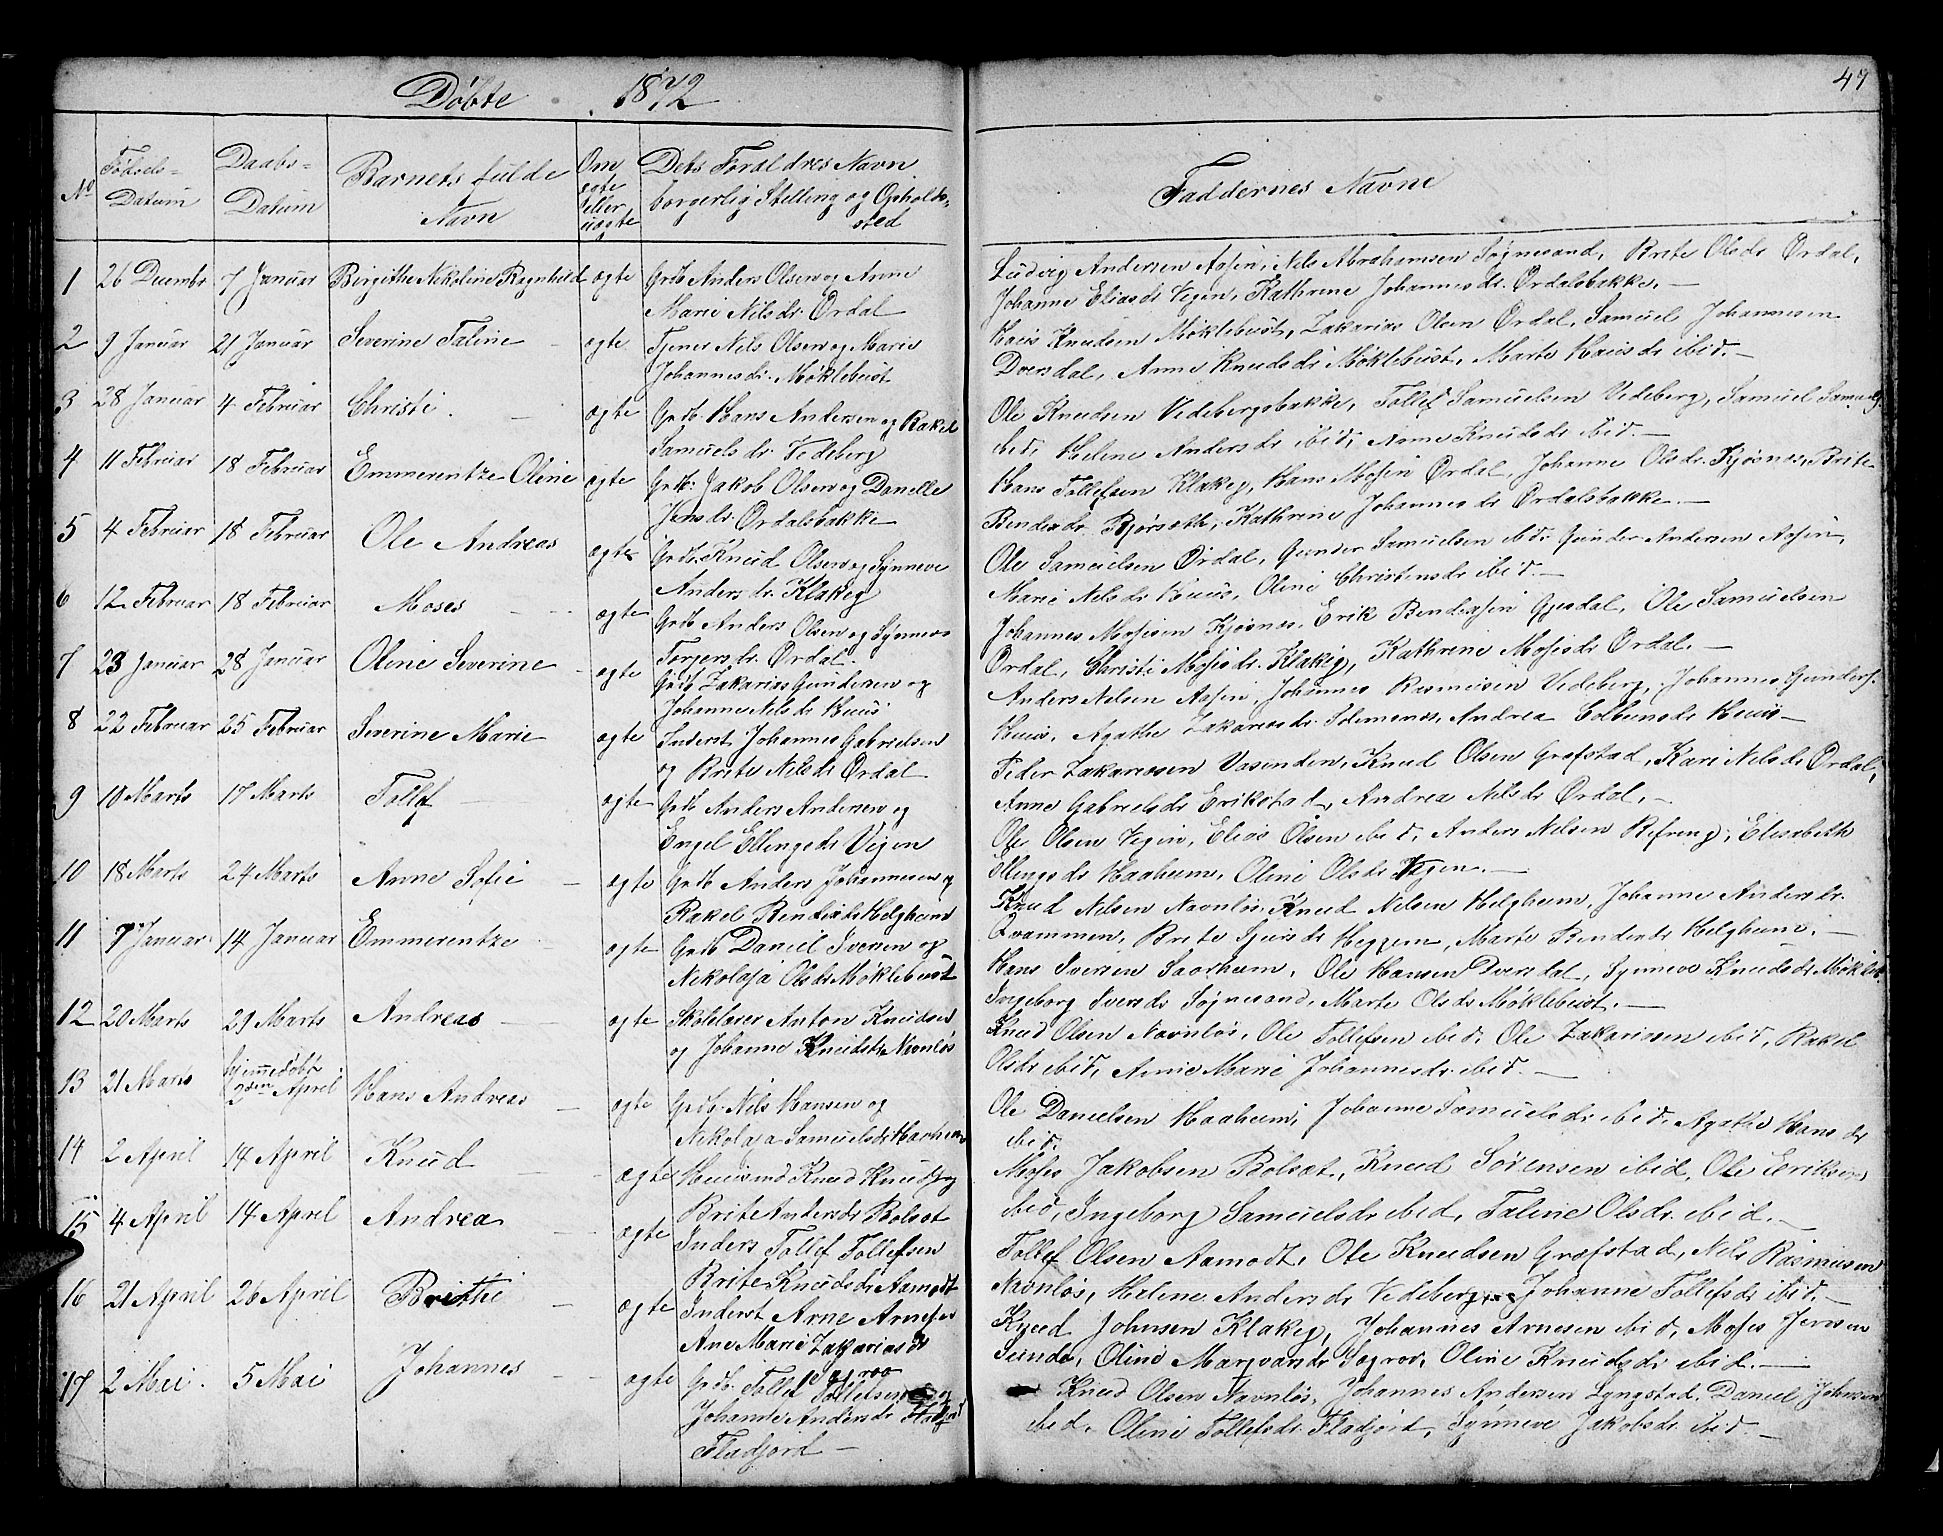 Døbte 1872
47
No
Fødsels-
Datum
Daabs-
Datum
Barnets fulde
Navn
Om
ægte
eller
uægte
Dets Forældres Navn
borgerlig Stilling og Opholds-
sted
Faddernes Navne
1 26 Decembr 7 Januar Birgithe Nikoline Ragnhild ægte Grdb Anders Olsen og Anne
Marie Nilsdr. Ørdal
2 9 Januar 21 Januar Severine Taline ægte Tjener Nils Olsen og Marie
Johannesdr. Møklebust
3 28 Januar 4 Februar Christi ægte Grdb. Hans Andersen og Rakel
Samuelsdr. Vedeberg
4 11 Februar 18 Februar Emmerentze Oline ægte Grdb. Jakob Olsen og Danelle
Jensdr. Ørdalsbakke
5 4 Februar 18 Februar Ole Andreas ægte Grdb. Knud Olsen og Synneve
Andersdr. Klakeg
6 12 Februar 18 Februar Moses ægte Grdb Anders Olsen og Synneve
Terjersdr. Ørdal.
7 23 Januar 28 Januar Oline Severine ægte Grdb Zakarias Gundersen og
Johanne Nilsdr Huus
8 22 Februar 25 Februar Severine Marie ægte Inderst Johannes Gabrielsen
og Brite Nilsdr Ørdal
9 10 Marts 17 Marts Tollef ægte Grdb Anders Andersen og
Engel Ellingsdr Vegen
10 18 Marts 24 Marts Anne Sofie ægte Grdb Anders Johannesen og
Rakel Bendixdr Helgheim
11 7 Januar 14 Januar Emmerentze ægte Grdb Daniel Iversen og
Nikolaja Olsdr Møklebust
12 20 Marts 29 Marts Andreas ægte Skolelærer Anton Knudsen
og Johanne Knudsdr Navnløs
13 21 Marts hjemmedøbt
April Hans Andreas ægte Grdb. Nils Hansen og
Nikolaja Samuelsdr Haaheim
14 2 April 14 April Knud ægte Huusmd Knud Knudsen og
Brite Andersdr Bolsæt
15 4 April 14 April Andrea ægte Inders Tollef Tollefsen
Brite Knudsdr Aamodt
16 21 April 26 April Brithe ægte Inderst Arne Arnesen
Ane Marie Zakariasdr
Sogrov
17 2 Mai 5 Mai Johannes ægte Grdb. Tollef Tollefsen og
Johanne Andersdr
Fladfjord
Ludvig Andersen Aasen, Nils Abrahamsen Søgnesand, Brite Olsdr Ørdal,
Johanne Eliasdr Vegen, Kathrine Johannesdr. Ørdalsbakke.
Hans Knudsen Møklebust, Zakarias Olsen Ørdal, Samuel Johannesen
Dversdal, Anne Knudsdr Møklebust, Marte Hansdr ibid.
Ole Knudsen Vedebergsbakke, Tollef Samuelsen Vedeberg, Samuel Samuels.
ibid, Helene Andersdr ibid, Anne Knudsdr ibid.
Hans Tollefsen Klakeg, Hans Mosin Ørdal, Johanne Olsdr. Kjøsnes, Brite
Bendixdr Bjørsæth, Kathrine Johannesdr Ørdalsbakke.
Ole Samuelsen Ørdal, Gunder Samuelsen ibid, Gunder Andersen Aasen,
Marie Nilsdr Huus, Oline Christensdr ibid.
Johannes Mosisen Kjøsnes, Erik Bendixsen Gjesdal, Ole Samuelsen
Ørdal, Christi Mosisdr. Klakeg, Kathrine Mosisdr Ørdal.
Anders Nilsen Aasen, Johannes Rasmusen Vedeberg, Johannes Gunders.
Huus, Agathe Zakariasdr Andrea Colbensdr Huus
Peder Zakariasen Vasenden, Knud Olsen Græfstad, Kari Nilsdr Ørdal,
Anne Gabrielsdr Erikstad, Andrea Nilsdr Ørdal.
Ole Olsen Vegen, Elias Olsen ibid, Anders Nilsen Refreng, Elisabeth
Ellingsdr Haaheim, Oline Olsdr Vegen.
Knud Nilsen Navnløs, Knud Nilsen Helgheim, Johanne Andersdr.
Qvammen, Brite Sjursdr Heggem, Marte Bendixdr Helgheim.
Hans Iversen Saarheim, Ole Hansen Dversdal, Synneve Knudsdr Møkleb.
Ingeborg Iversdr Søgnesand, Marte Olsdr Møklebust.
Knud Olsen Navnløs, Ole Tollefsen ibid, Ole Zakariasen ibid, Rakel
Olsdr ibid, Anne Marie Johannesdr ibid.
Ole Danielsen Haaheim, Johanne Samuelsdr ibid, Agathe Hansdr
ibid.
Moses Jakobsen Bolsæt, Knud Sørensen ibid, Ole Eriksen
ibid, Ingeborg Samuelsdr ibid, Taline Olsdr. ibid.
Tollef Olsen Aamodt, Ole Knudsen Græfstad, Nils Rasmusen
Navnløs, Helene Andersdr Vedeberg, Johanne Tollefsdr ibid.
Knud Johnsen Klakeg, Johannes Arnesen ibid, Moses Jensen
Sunde, Oline Marqvardsdr Sogrov, Oline Knudsdr ibid.
Knud Olsen Navnløs, Johannes Andersen Lyngstad, Daniel Johnsen
ibid, Oline Tollefsdr. Fladfjord, Synneve Jakobsdr ibid